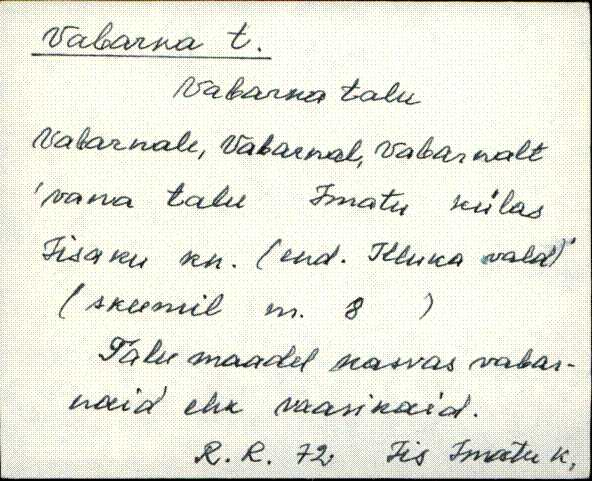 Vabarna t.
Vabarna talu
Vabarnale, Vabarnal, Vabarnalt
'vana talu Imatu külas
Iisaku kn. (end. Illuka vald)'
(skeemil nr. 8 )
Talu maadel kasvas vabar-
naid ehk vaarikaid.
R. R. 72. Iis Imatu k,